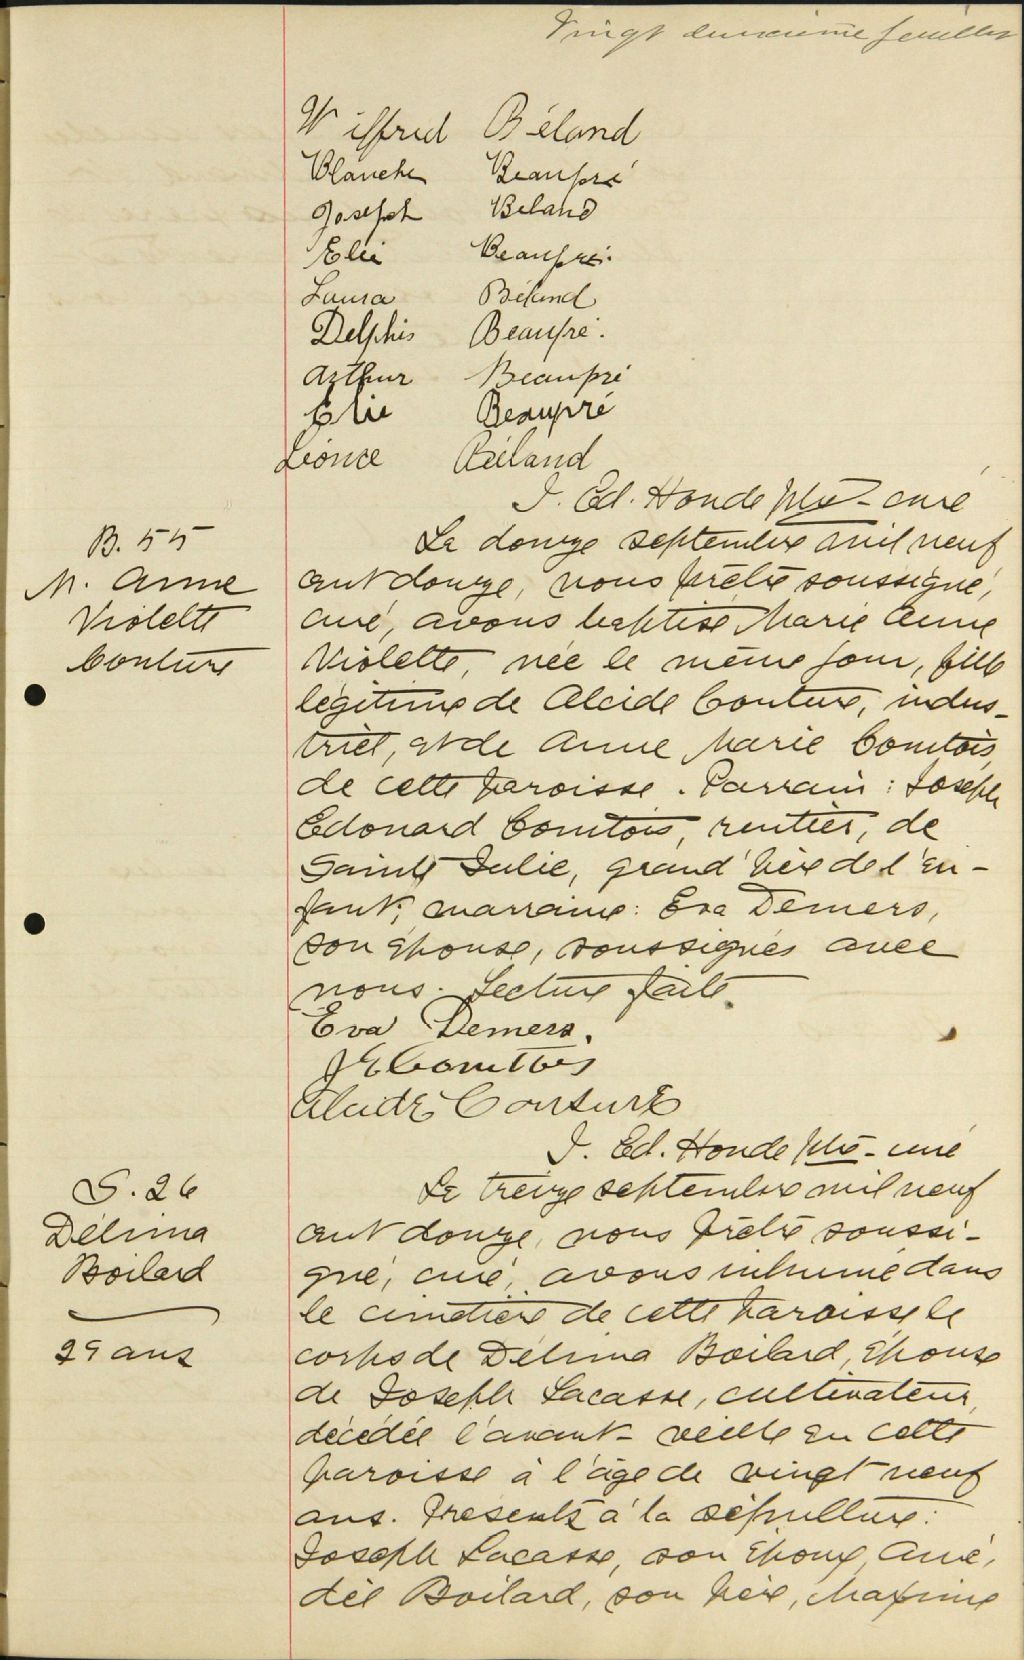 Vingt deuxième feuillet
Wilfrid Béland
Blanche Beaupré
Joseph Béland
Elie Beaupré.
Laura Béland
Delphis Beaupré.
Arthur Beaupré
Elie Beaupré
Léonce Béland
J. Ed. Houde ptre - curé
B. 55
M. Anne
Violette
Couture
Le douze septembre mil neuf
cent douze, nous prêtre soussigné,
curé, avons baptisé Marie Anne
Violette, née le même jour, fille
légitime de Alcide Couture, indus-
triel, et de Anne Marie Comtois,
de cette paroisse. Parrain: Joseph
Edouard Comtois, rentier, de
Sainte Julie, grand'père de l'en-
fant; marraine: Eva Demers,
son épouse, soussignés avec
nous. Lecture faite.
Eva Demers.
J E Comtois
Alcide Couture
J. Ed. Houde ptre - curé
S. 26
Délima
Boilard
29 ans
Le treize septembre mil neuf
cent douze, nous prêtre soussi-
gné, curé, avons inhumé dans
le cimetière de cette paroisse le
corps de Délima Boilard, épouse
de Joseph Lacasse, cultivateur,
décédée l'avant-veille en cette
paroisse à l'âge de vingt neuf
ans. Présents à la sépulture:
Joseph Lacasse, son époux, Amé-
dée Boilard, son père, Maxime